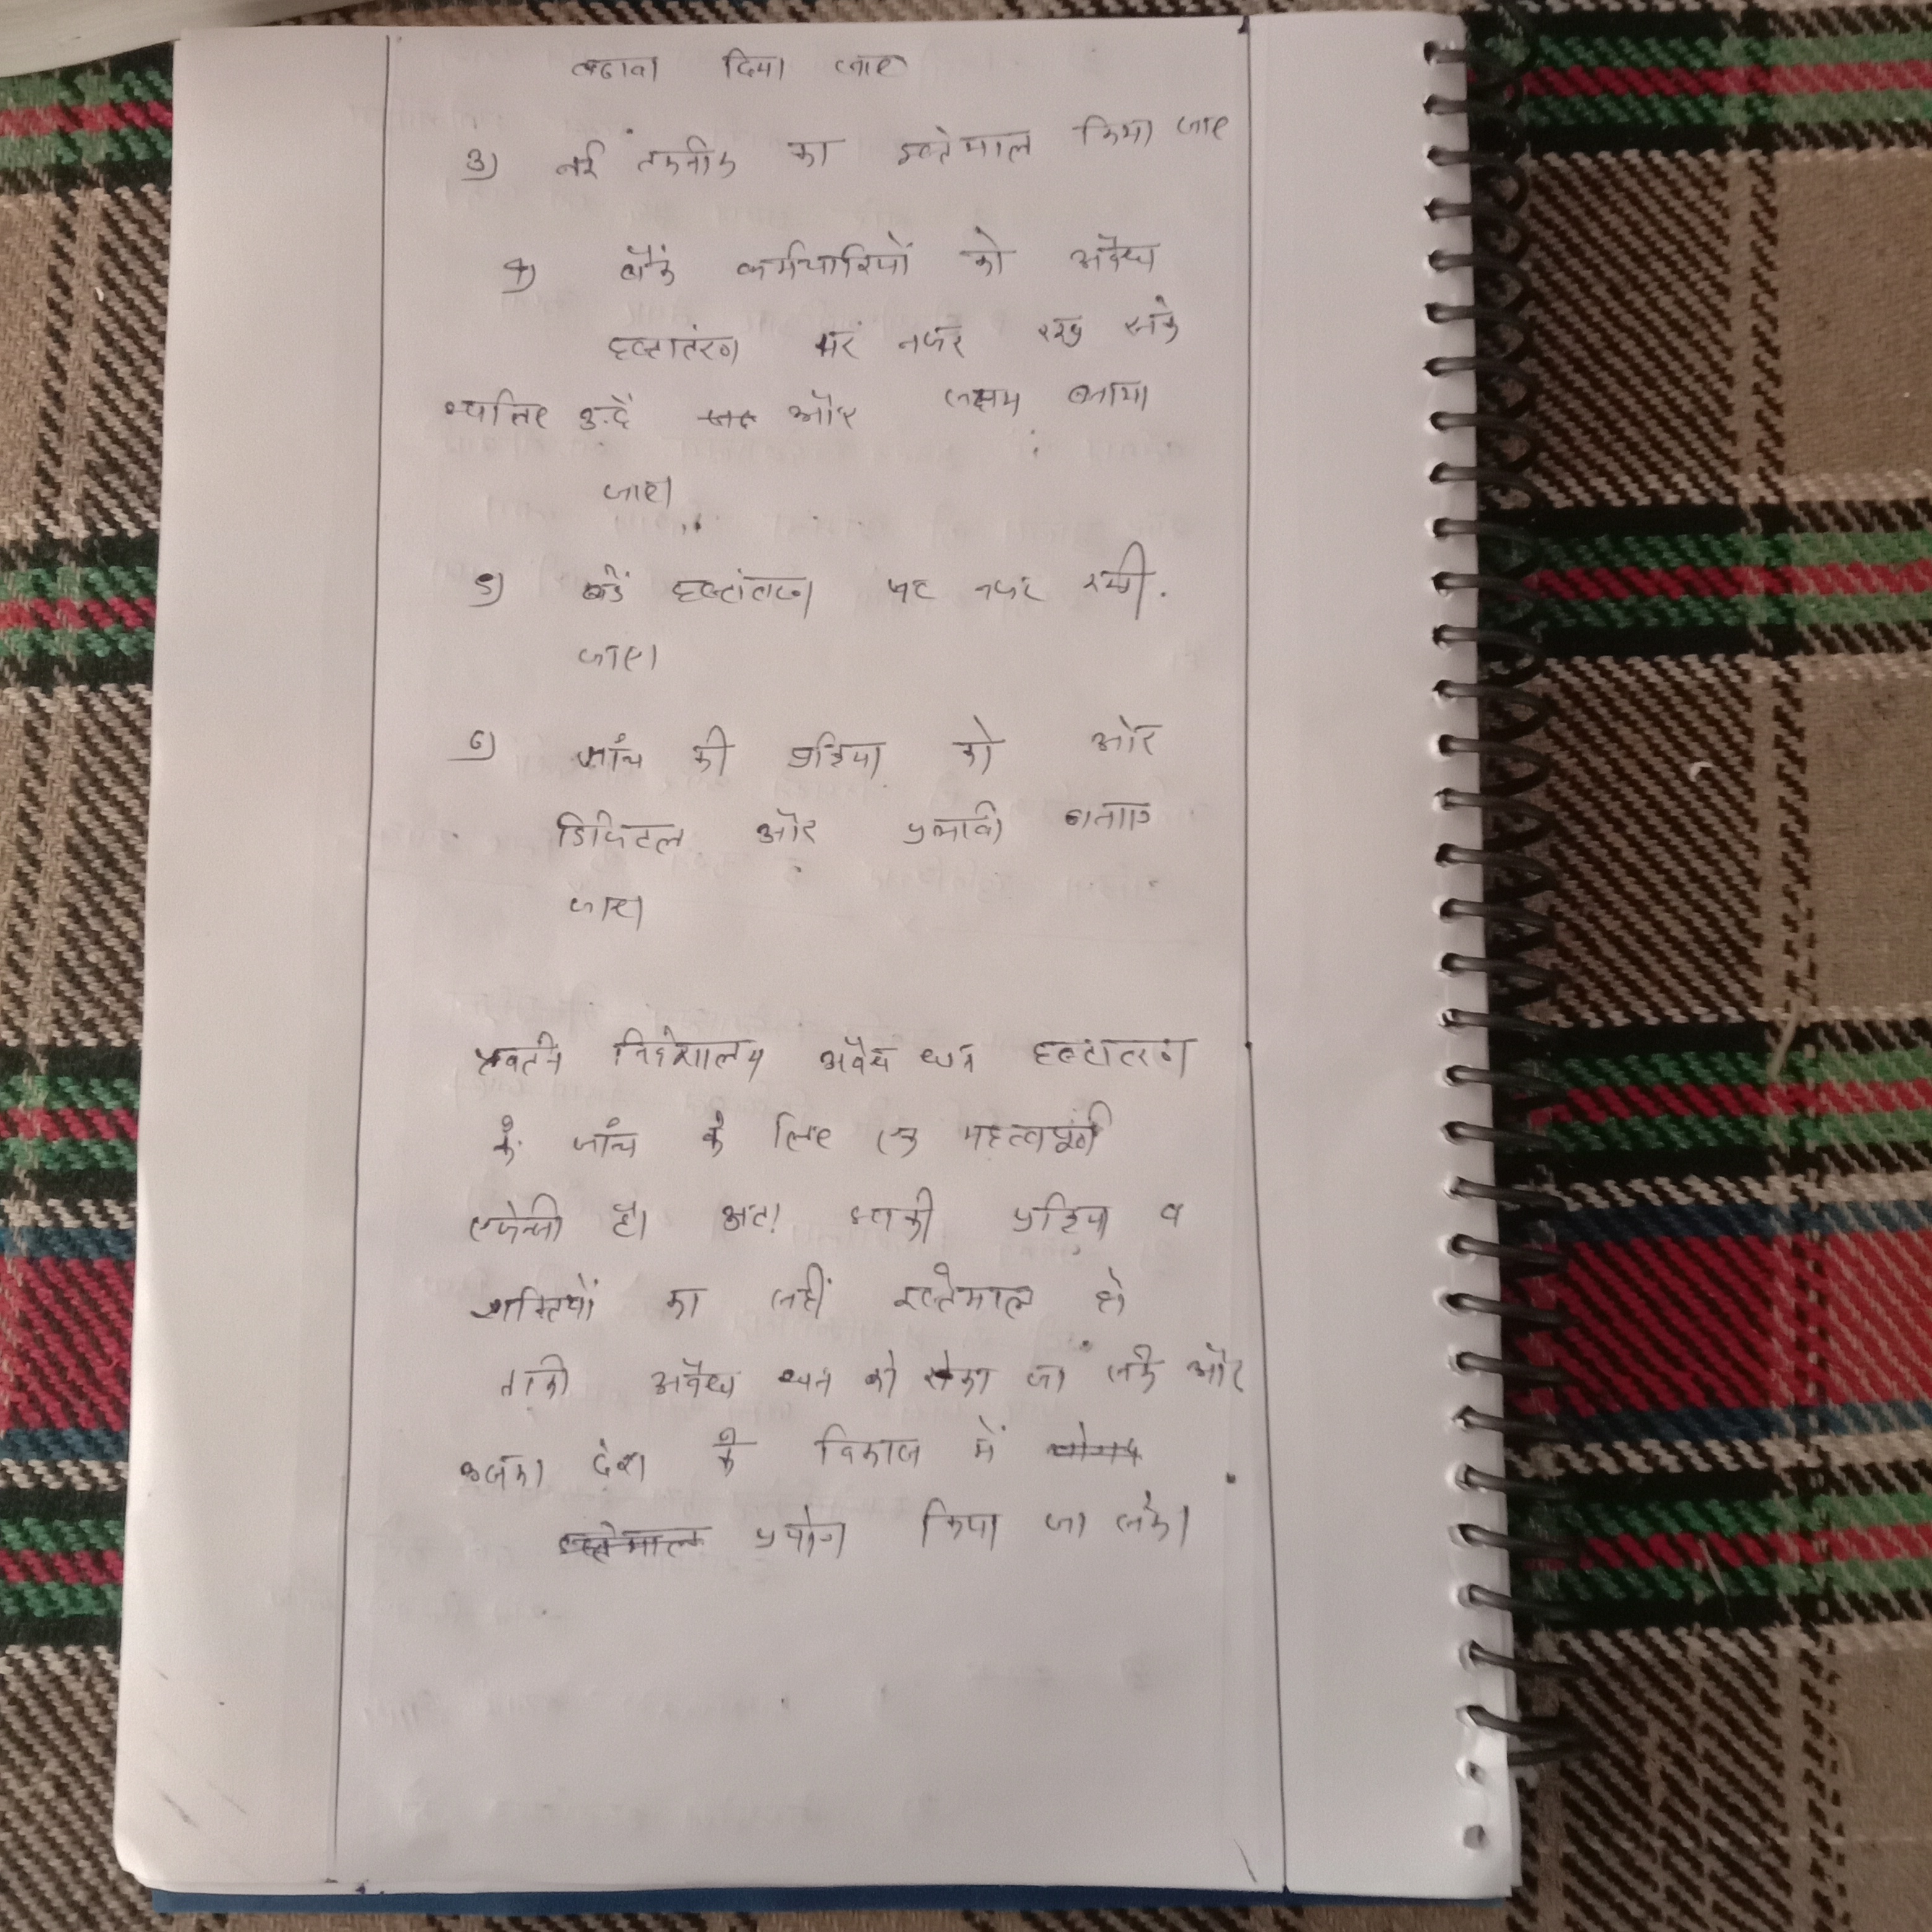 बढावा दिया जाए
3) नई तकनीक का इस्तेमाल किया जाए
4) बैंक कर्मचारियों को अवैध
हस्तातंरण पर नजर रख सके
इसलिए उन्हें और सक्षम बनाया
जाए।
5) बडें हस्तांतरण पर नजर रखी.
जाए।
6) जांच की प्रक्रिया को और
डिजिटल और प्रभावी बनाया
जाए।
प्रवर्तन निदेशालय अवैध धन हस्तातरण
के जांच के लिए एक महत्वपूर्ण
एजेन्सी है। अंतः इसकी प्रक्रिया व
शक्तियों का सहीं इस्तेमाल हो
ताकी अवैध धन को रोका जा सके और
उसका देश के विकास में
इस्तेमाल प्रयोग किया जा सके।